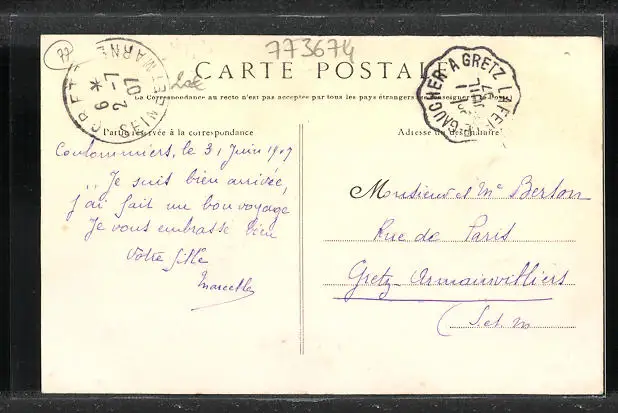 77
773674
CARTE POSTALE
La Correspondance au recto n'est pas acceptée par tous les pays étrangers
Partie réservée à la correspondance
Adresse du destinataire
GRETZ SEINE ET MARNE
6 *
2 -7
07
LA FERTE GAUCHER A GRETZ
1
JUIL
07
Coulommiers, le 31 Juin 1907
Je suis bien arrivée,
j'ai fait un bon voyage
Je vous embrasse bien
Votre fille
Marcelle
Monsieur et Me Berton
Rue de Paris
Gretz-Armainvilliers
(S. et. M